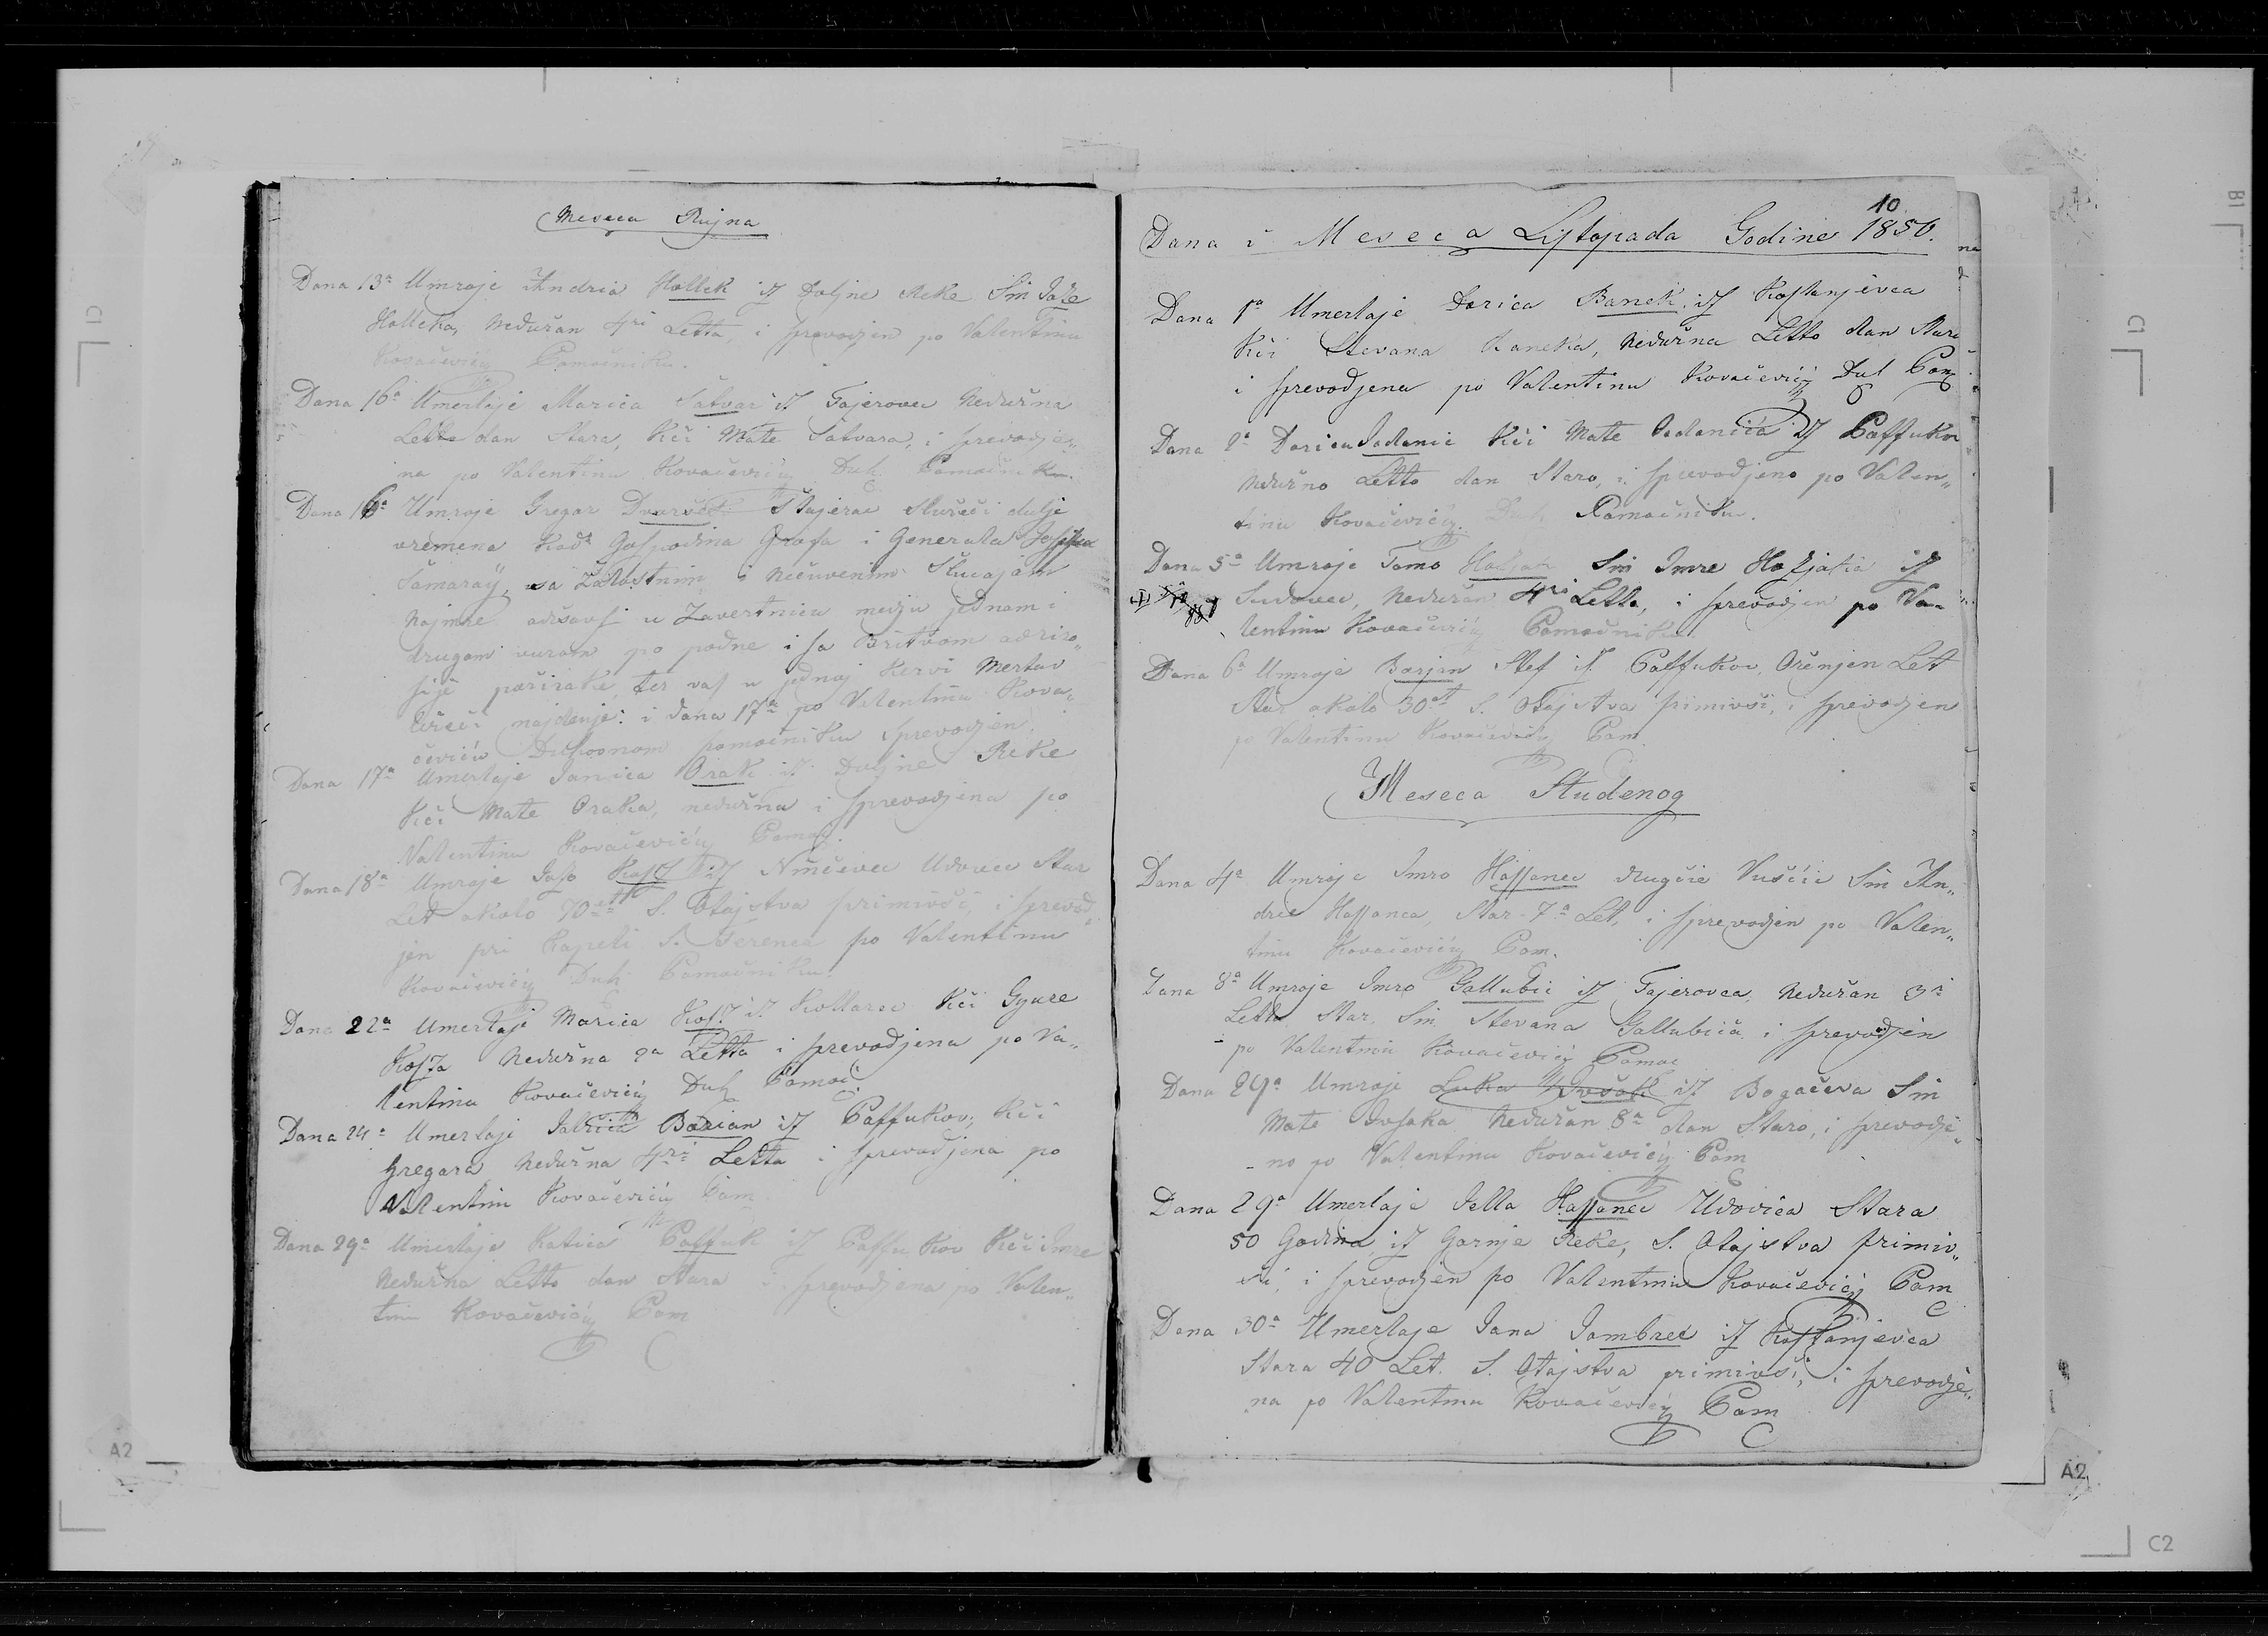 Meseca Rujna
Dana 13ª Umroje Andria Hollek iz Doljne Reke Sin Jože
Holleka, Nedužan 4ri Letta, i sprevodjen po Valentinu
Kovačeviću Pomočniku.
Dana 16ª Umerlaje Marica Šatvar iz Fajerovca Nedužna
Letto dan Stara, Kči Mate Šatvara, i sprevodje„
na po Valentinu Kovačeviću Duh. Pomočniku.
Dana 16ª Umroje Gregor Štajerac služeči dulje
vremena kod Gospodina Grofa i Generala
Šamaraÿ, sa Žalostnim i Nečuvenim Slučajom
Najmre odšavš u Zavertnicu medju jednom i
drugom vurom po podne i sa Britvom odrizo„
sije požirake, ter vas u jednoj Kervi Mertav
ležeči najdenje: i dana 17ª po Valentinu Kova„
čeviću Duhovnom pomočniku Sprevodjen.
Dana 17ª Umerlaje Janica Orak iz Doljne Reke
Kči Mate Oraka, nedužna i sprevodjena po
Valentinu Kovačeviću Pomoč.
Dana 18ª Umroje Joso iz Ninčevca Udovec Star
Let okolo 70 S. Otajstva primivši, i sprevod„
jen pri Kapeli S. Ferenca po Valentinu
Kovačeviću Duh Pomočniku.
Dana 22ª Umerlaje Marica iz Kollarec Kči Gyure
Nedužna 2ª Letta i sprevodjena po Va„
lentinu Kovačeviću Duh Pomoč.
Dana 24ª Umerlaje Barian iz Paffukov, Kči
Gregora Nedužna 4ri Letta i sprevodjena po
Valentinu Kovačeviću Pom
Dana 29ª Umerlaje Katica Paffuk iz Paffukov Kči Imre
Nedužna Letto dan Stara i sprevodjena po Valen„
tinu Kovačeviću Pom
10
Dana i Meseca Listopada Godine 1850.
Dana 1ª Umerlaje Dorica Banek iz Kostanjevca
Kči Stevana Baneka, Nedužna Letto dan Stara
i sprevodjena po Valentinu Kovačeviću Duh Pom
Dana 2ª Dorica Kči Mate iz Paffukov
Nedužno Letto dan Staro, i sprevodjeno po Valen„
tinu Kovačeviću Duh. Pomočniku.
Dana 5ª Umroje Tomo Sin Imre iz
Sudovec, Nedužan 4ri Letta, i sprevodjen po Va„
lentinu Kovačeviću Pomočniku.
Dana 6ª Umroje Stef iz Paffukov, Oženjen Let
Star okolo 30 S. Otajstva primivši, i sprevodjen
po Valentinu Kovačeviću Pom
Meseca Studenog
Dana 4ª Umroje Imro Hassanec drugčie Vuščić Sin An„
drie Hassanca, Star 7ª Let, i sprevodjen po Valen„
tinu Kovačeviću Pom.
Dana 8ª Umroje Imro Gallubić iz Fajerovca Nedužan 3i
Letta Star. Sin Stevana Gallubića i sprevodjen
po Valentinu Kovačeviću Pomoč
Dana 29ª Umroje Luka iz Bogačeva Sin
Mate Nedužan 8ª dan Staro, i sprevodje„
no po Valentinu Kovačeviću Pom
Dana 29ª Umerlaje Jella Hassanec Udovica Stara
50 Godina iz Gornje Reke, S. Otajstva primiv„
ši, i sprevodjen po Valentinu Kovačeviću Pom
Dana 30ª Umerlaje Jana Jambrec iz Kostanjevca
Stara 40 Let. S. Otajstva primivši, i sprevodje„
na po Valentinu Kovačeviću Pom
C1
A2
B1
C1
A2
C2